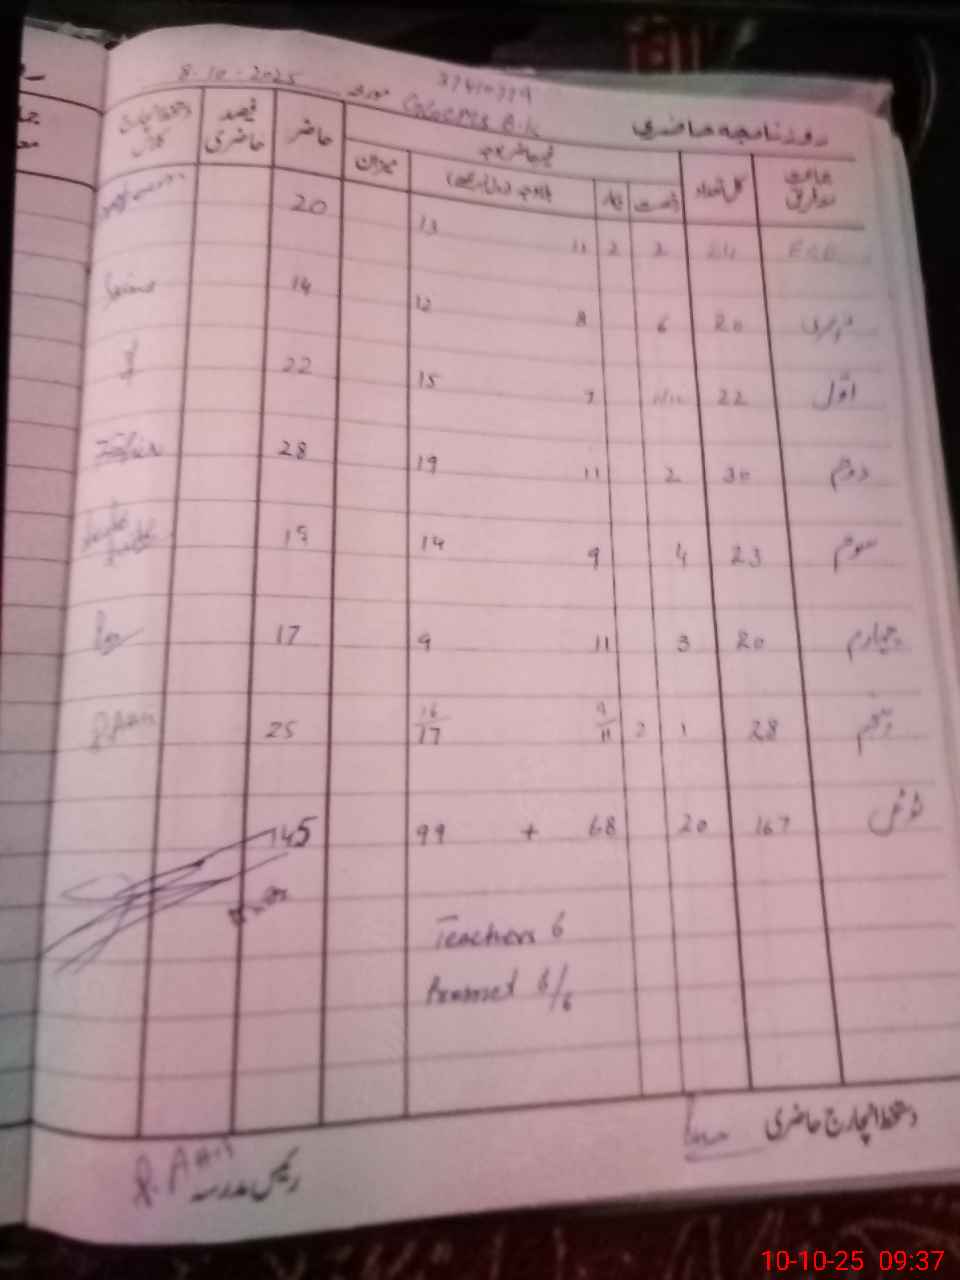 8-10-2025
37410379
روزنامچہ حاضری
مورخہ
جماعت معہ فریق
کل تعداد
غیر حاضر معہ وجہ
رخصت
بیمار
میزان
حاضر
فیصد حاضری
دستخط انچارج کلاس
ECE 24 2 2 11 13 20
20 6 8 12 14 Saima
اوّل 22 7 15 22
دوئم 30 2 11 19 28
سوئم 23 4 9 14 19
چہارم 20 3 11 9 17
پنجم 28 1 2 9/11 16/17 25 R.Anis
ٹوٹل 167 20 68 + 99 145
Teachers 6
Present 6/6
دستخط انچارج حاضری
رئیس مدرسہ R.Anis
10-10-25 09:37